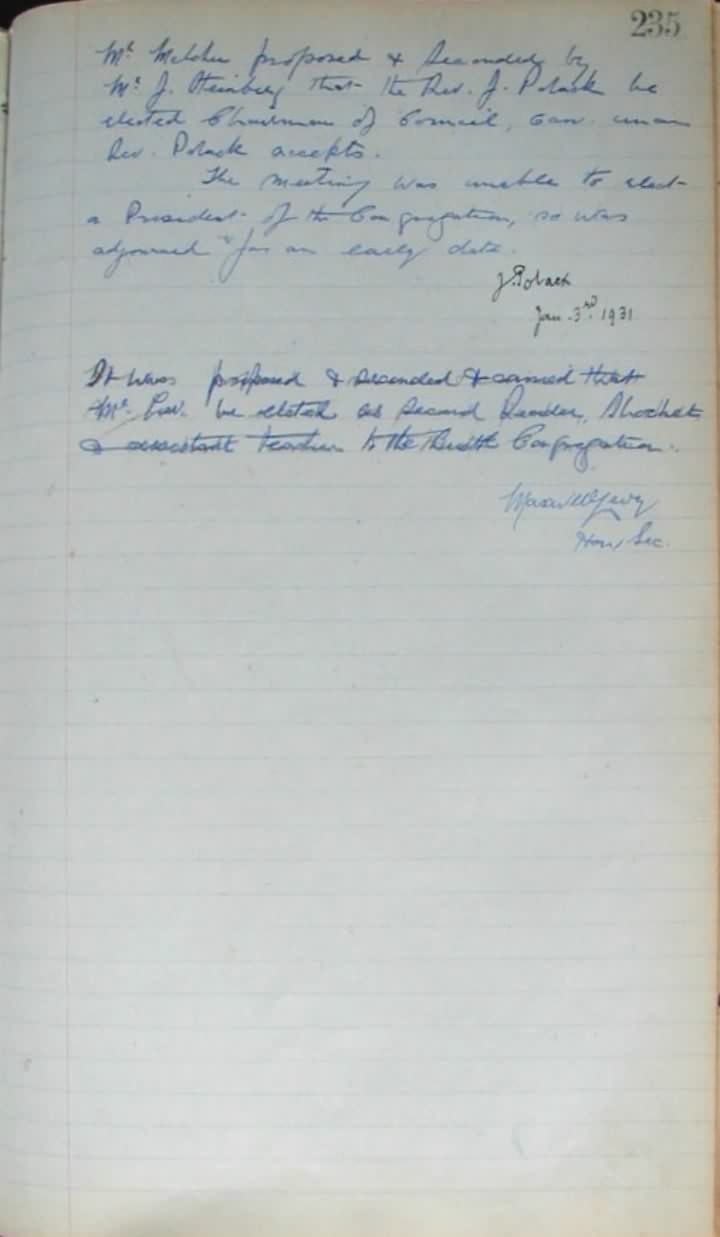 235
Mr. Melcher proposed & seconded by
Mr. J. Steinberg that the Rev. J. Polack be
elected Chairman of Council, Carr. unan
Rev. Polack accepts.
The meeting was unable to elect
a President of the Congregation, so was
adjourned for an early date.
J. Polack
Jan. 3rd. 1931
It was proposed & seconded & carried that
Mr. be elected as Second Reader, Shochet
& assistant teacher to the Congregation.
Hon Sec.